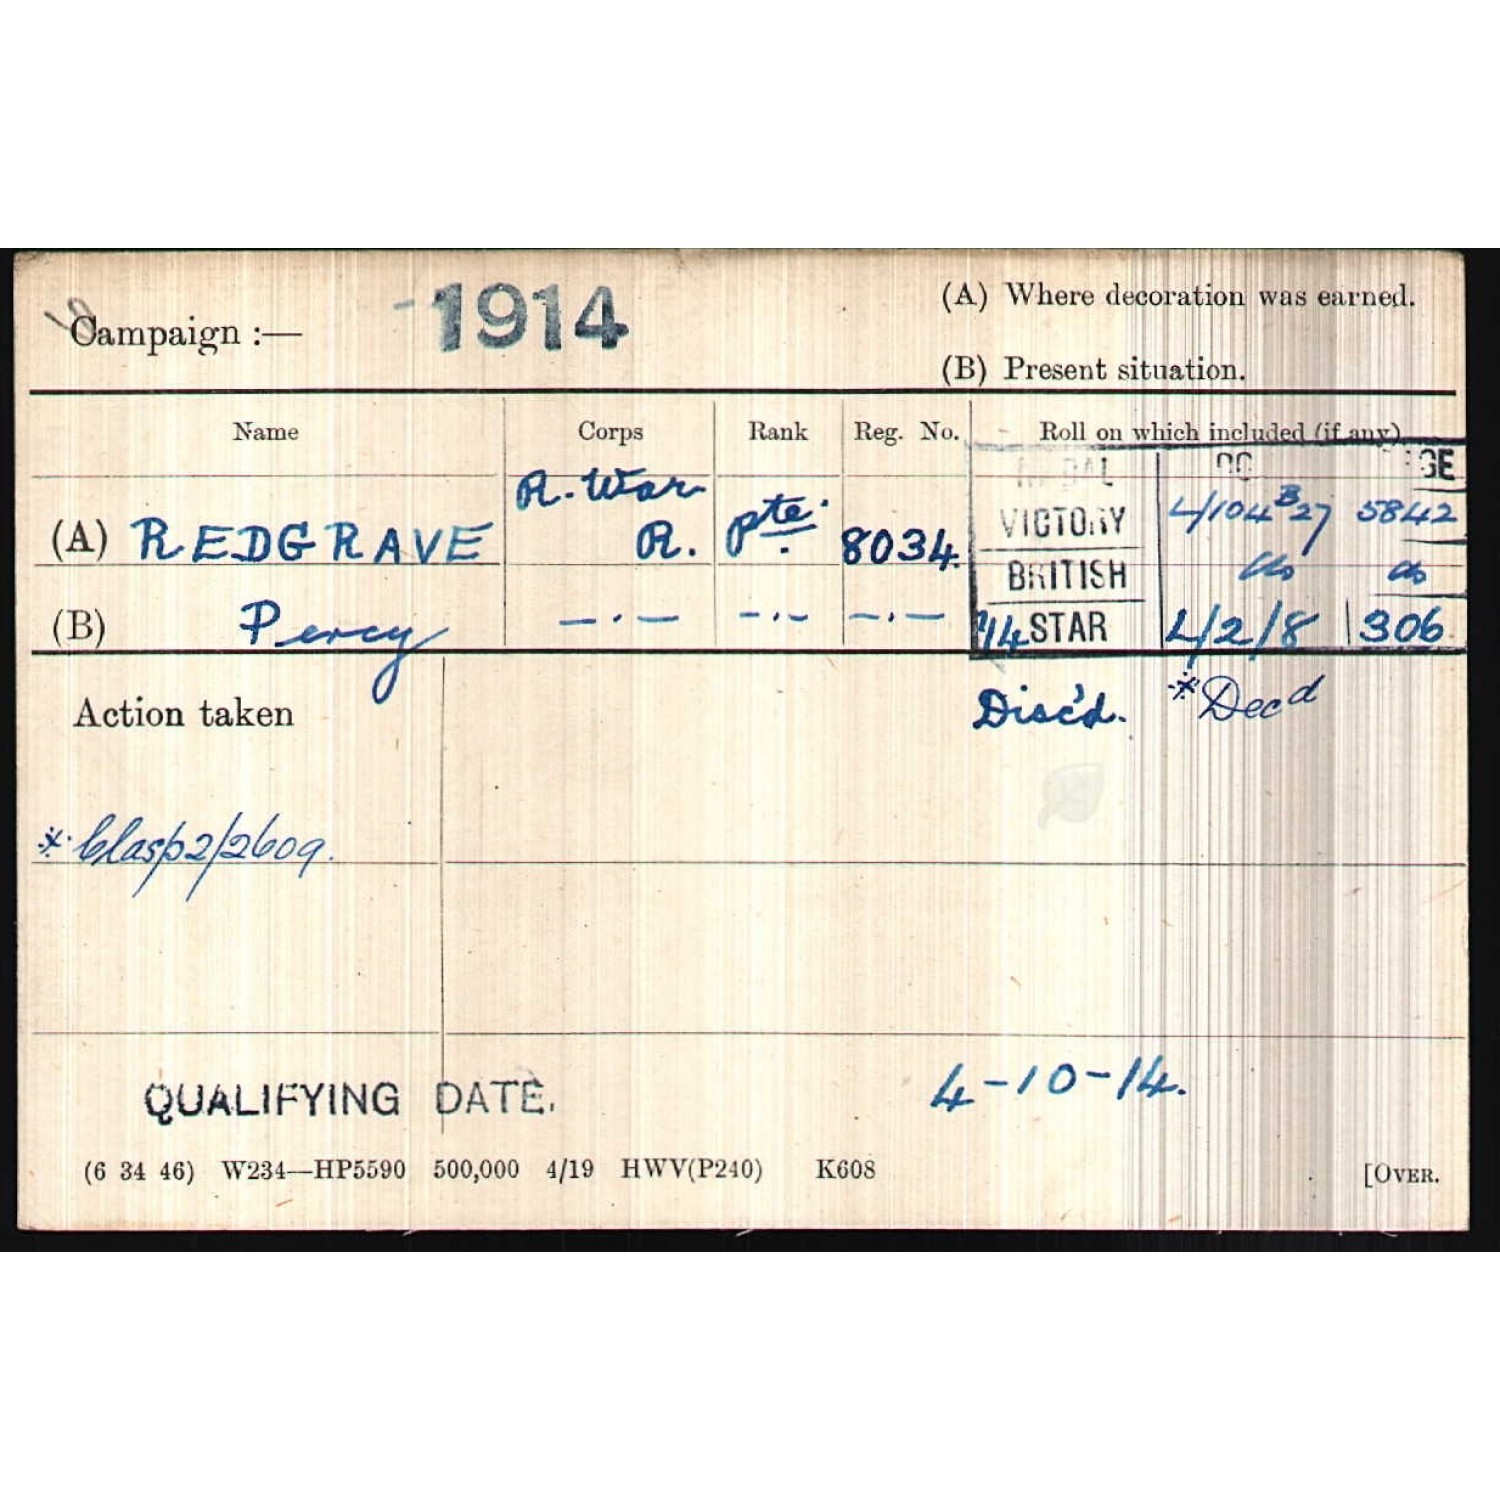 Campaign :— 1914
(A) Where decoration was earned.
(B) Present situation.
Name Corps Rank Reg. No. Roll on which included (if any)
(A) REDGRAVE R. War R. Pte. 8034.
VICTORY L/104 B27 5842
BRITISH do do
(B) Percy — . — - . - — . — '14 STAR L/2/8 306
Action taken
Disc'd. * Decd
* Clasp 2/2609.
QUALIFYING DATE. 4-10-14.
(6 34 46) W234—HP5590 500,000 4/19 HWV(P240) K608 [OVER.